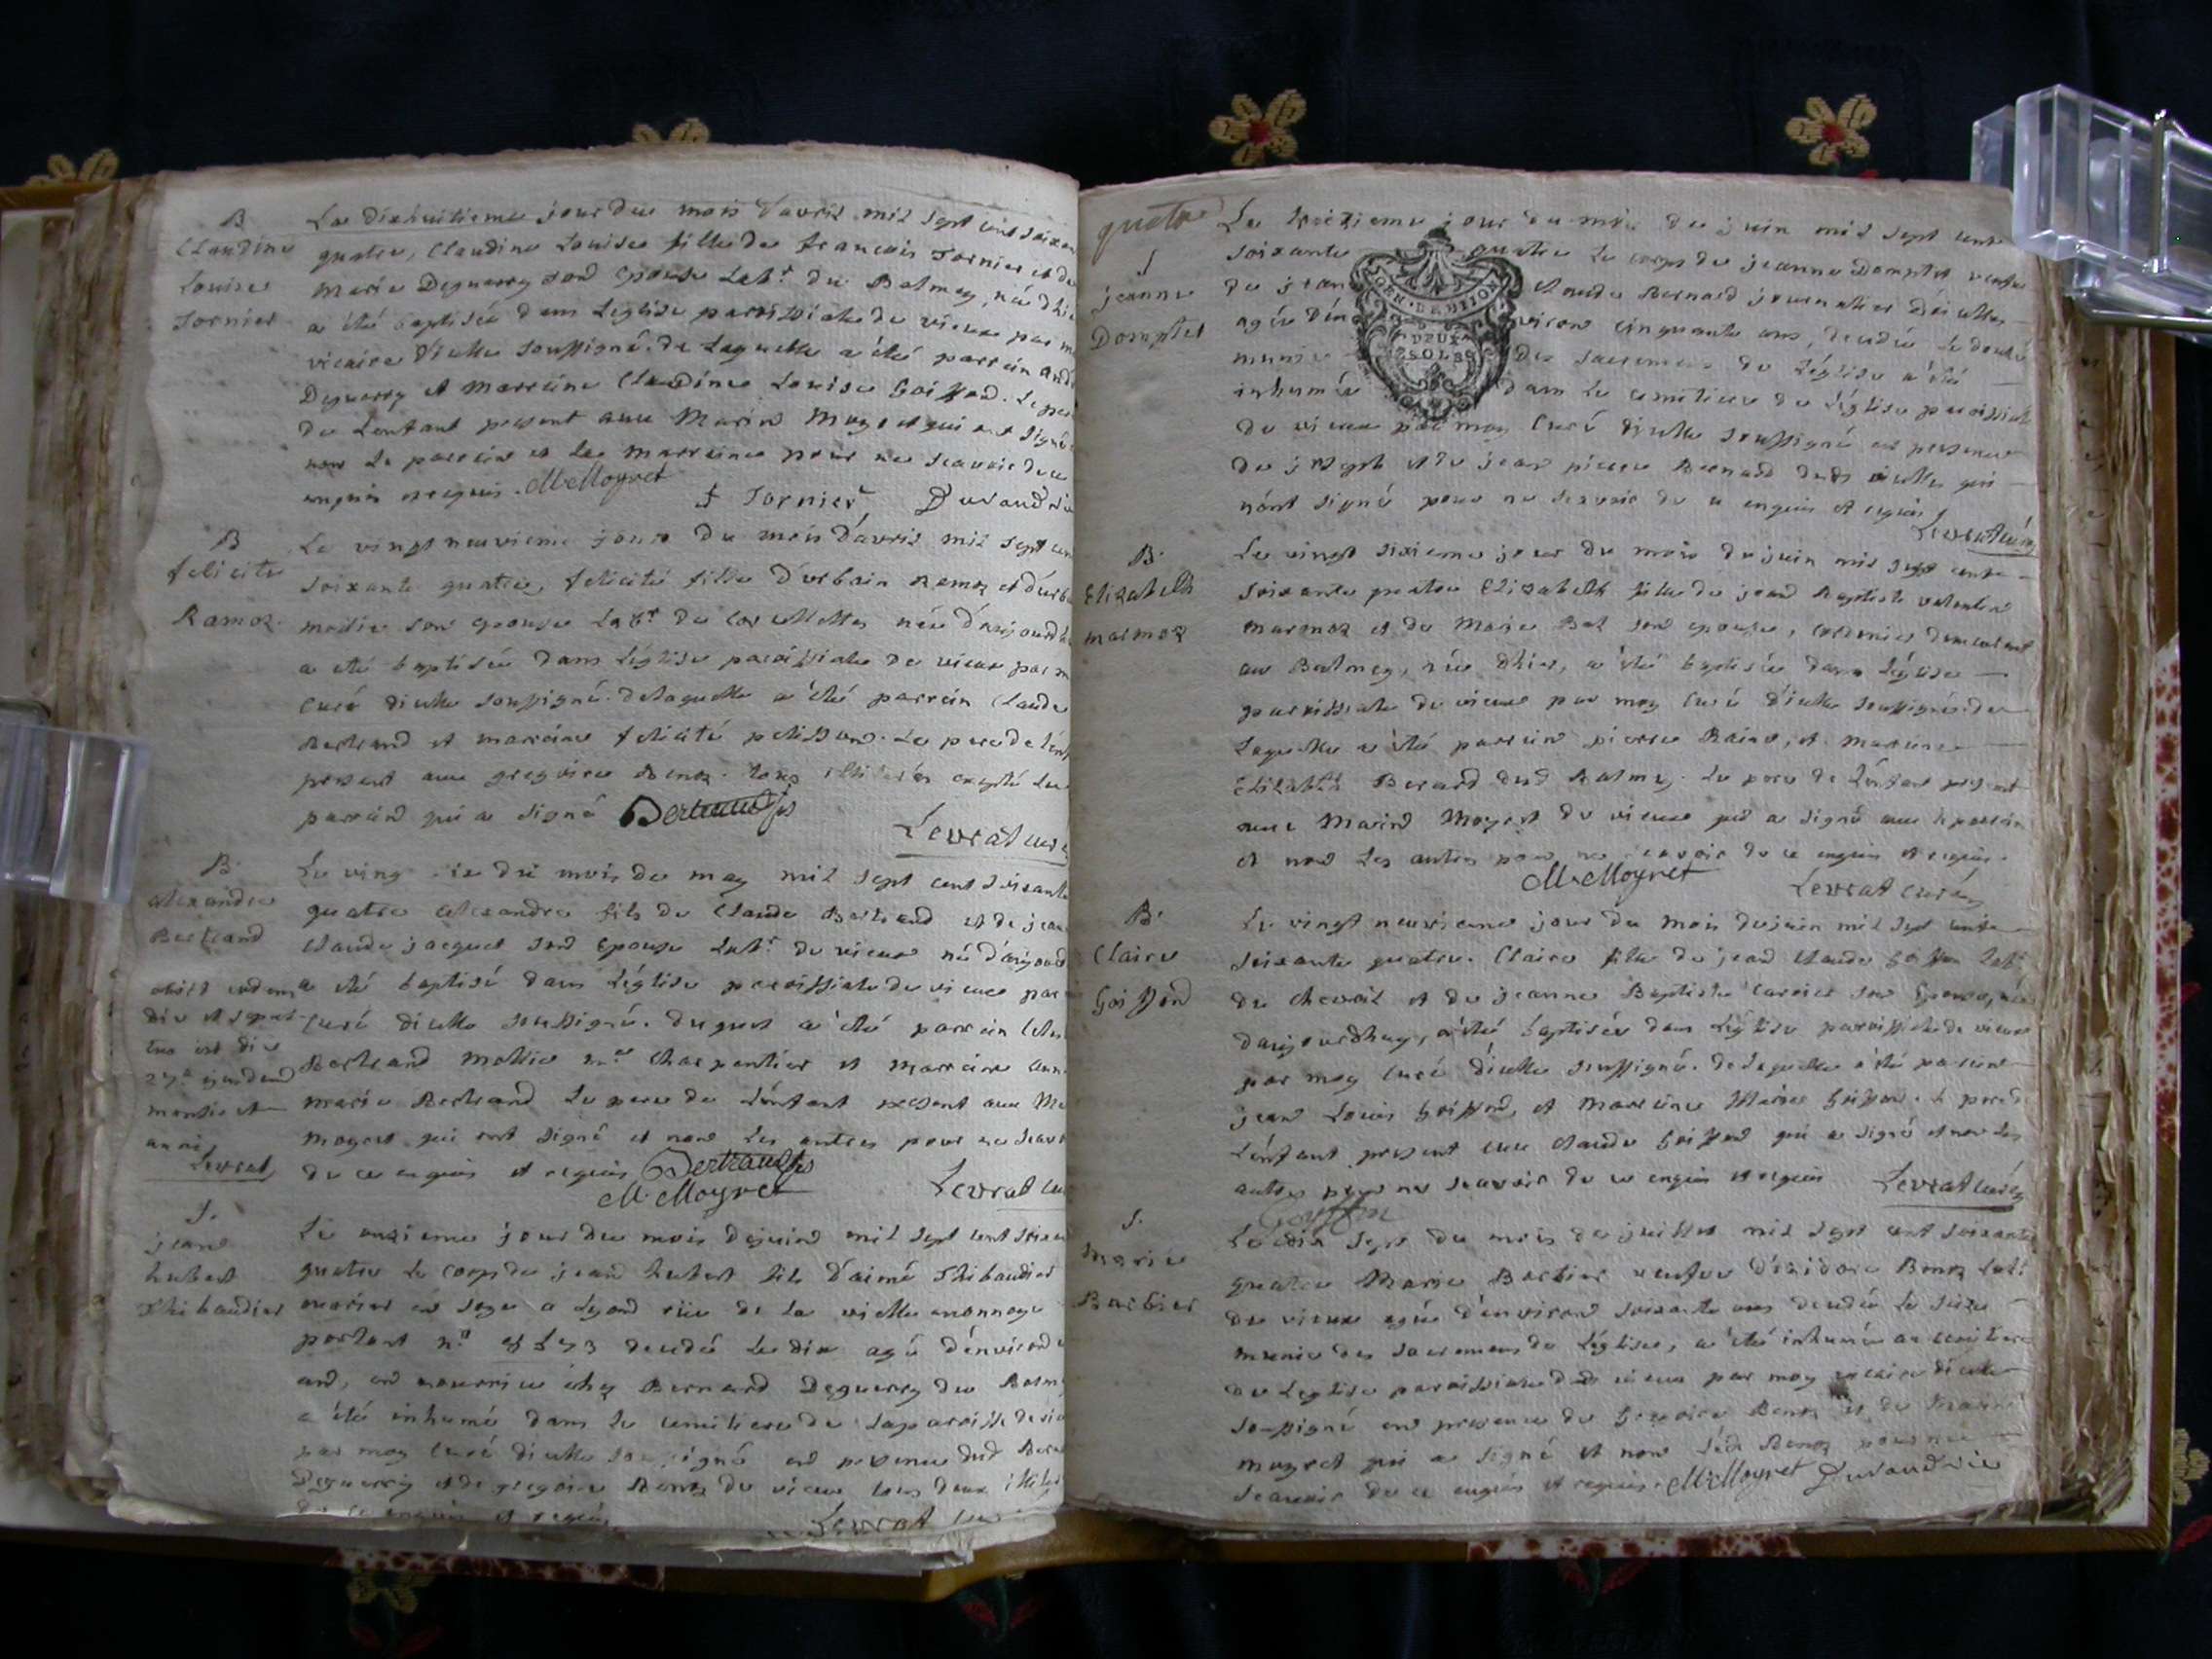 B
Claudine
Louise
Tornier
Le dixhuitieme jour du mois d'avril mil sept cent soixan
quatre, Claudine Louise fille de francois Tornier et de
Marie Deguerry son Epouse Labr. du Balmey, née d'hier
a été baptisée dans l'église parroissiale de vieux par m
vicaire d'icelle soussigné. de laquelle a été parrain
Deguerry et marreine Claudine Louise Goiffon. Le pere
de l'enfant present avec Marin Moyret qui ont signé
non le parrein et la marreine pour ne scavoir de ce
enquis et requis. M. Moyret
f Tornier Durand
B
felicité
Ramoz
Le vingt neuvieme jour du mois d'avril mil sept cen
soixante quatre, felicité fille d'urbain Ramoz et d'urb
son epouse Labr. de née d'aujourdh
a été baptisée dans l'église parroissiale de vieux par m
curé d'icelle soussigné. de laquelle a été parrein Claude
Bertrand et marreine felicité pelisson. Le pere de l'enf
present avec gregoire Benoz. tous excepté le
parreind qui a signé Bertrand fils
Levrat curé
B.
alexandre
Bertrand
Le ving du mois de may mil sept cent soixante
quatre alexandre fils de Claude Bertrand et de jean
Claude jacquet son Epouse Labr. de vieux né d'aujourd
a été baptisé dans l'église parroissiale de vieux par
curé d'icelle soussigné. duquel a été parrein
Bertrand mollie me. Charpentier et marreine ann
marie Bertrand Le pere de l'enfant present avec Ma
moyret qui ont signé et non les autres pour ne scavo
de ce enquis et requis Bertrand fils
M. Moyret Levrat cur
obiit eadem
die et sepul-
tus est die
27a. ejusdem
mensis et
anni
Levrat
S.
jean
hubert
Thibaudier
Le onzieme jour du mois de juin mil sept cent soixan
quatre le corps de jean hubert fils d'aimé Thibaudier
ouvrier en soye a Lyon rüe de la vielle monnoye
portant n° decedé le dix agé d'environ
and, en nourrice chez Bernard Deguerry du Balm
a été inhumé dans le cemitiere de la paroisse de vie
par moy curé d'icelle soussigné en presence dud Bern
Deguerry et de gregoire Benoz de vieux tous deux
de ce enquis et requis
Levrat cur
quatre
S
jeanne
Domptet
Le treizieme jour du mois de juin mil sept cent
soixante quatre le corps de jeanne Domptet veufve
de jean Bernard journalier d'icelles
agée d'environ cinquante ans, decedée le douze
munie des sacremens de l'église a été
inhumée dans le cemetiere de l'église paroissiale
de vieux par moy curé d'icelle soussigné en presence
de joseph et de jean pierre Bernard qui
n'ont signé pour ne scavoir de ce enquis et requis
Levrat curé
GEN. DE DIJON
DEUX
SOLS
B.
Elizabeth
marmoz
Le vingt sixieme jour du mois de juin mil sept cent
soixante quatre Elizabeth fille de jean Baptiste valentin
marmoz et de Marie Bal son epouse, cordonier demeurant
au Balmey, née d'hier, a été baptisée dans l'église
parroissiale de vieux par moy curé d'icelle soussigné. de
laquelle a été parrein pierre, et marreine
Elizabeth Berard dud Balmey. Le pere de l'enfant present
avec Marin Moyret de vieux qui a signé avec le parrein
et non les autres pour ne scavoir de ce enquis et requis.
M. Moyret Levrat curé
B.
Claire
Goiffon
Le vingt neuvieme jour du mois de juin mil sept cent
soixante quatre. Claire fille de jean Claude Goiffon Labr.
de chevril et de jeanne Baptiste Carrier son Epouse, née
d'aujourdhuy, a été baptisée dans l'église parroissiale de vieux
par moy curé d'icelle soussigné. de laquelle a été parrein
jean Louis Goiffon, et Marreine Marie Goiffon. le pere de
l'enfant present avec Claude Goiffon qui a signé et non les
autres pour ne scavoir de ce enquis et requis Levrat curé
Goyffon
S.
Marie
Barbier
Le dix sept du mois de juillet mil sept cent soixante
quatre Marie Barbier veufve d'izidore Benoz Labr.
de vieux agée d'environ soixante ans decedée le seize
munie des sacremens de l'église, a été inhumée au cemitiere
de l'eglise paroissiale dud vieux par moy vicaire d'icelle
soussigné en presence de gregoire Benoz et de Marin
moyret qui a signé et non led. Benoz pour ne
scavoir de ce enquis et requis. M. Moyret Durand